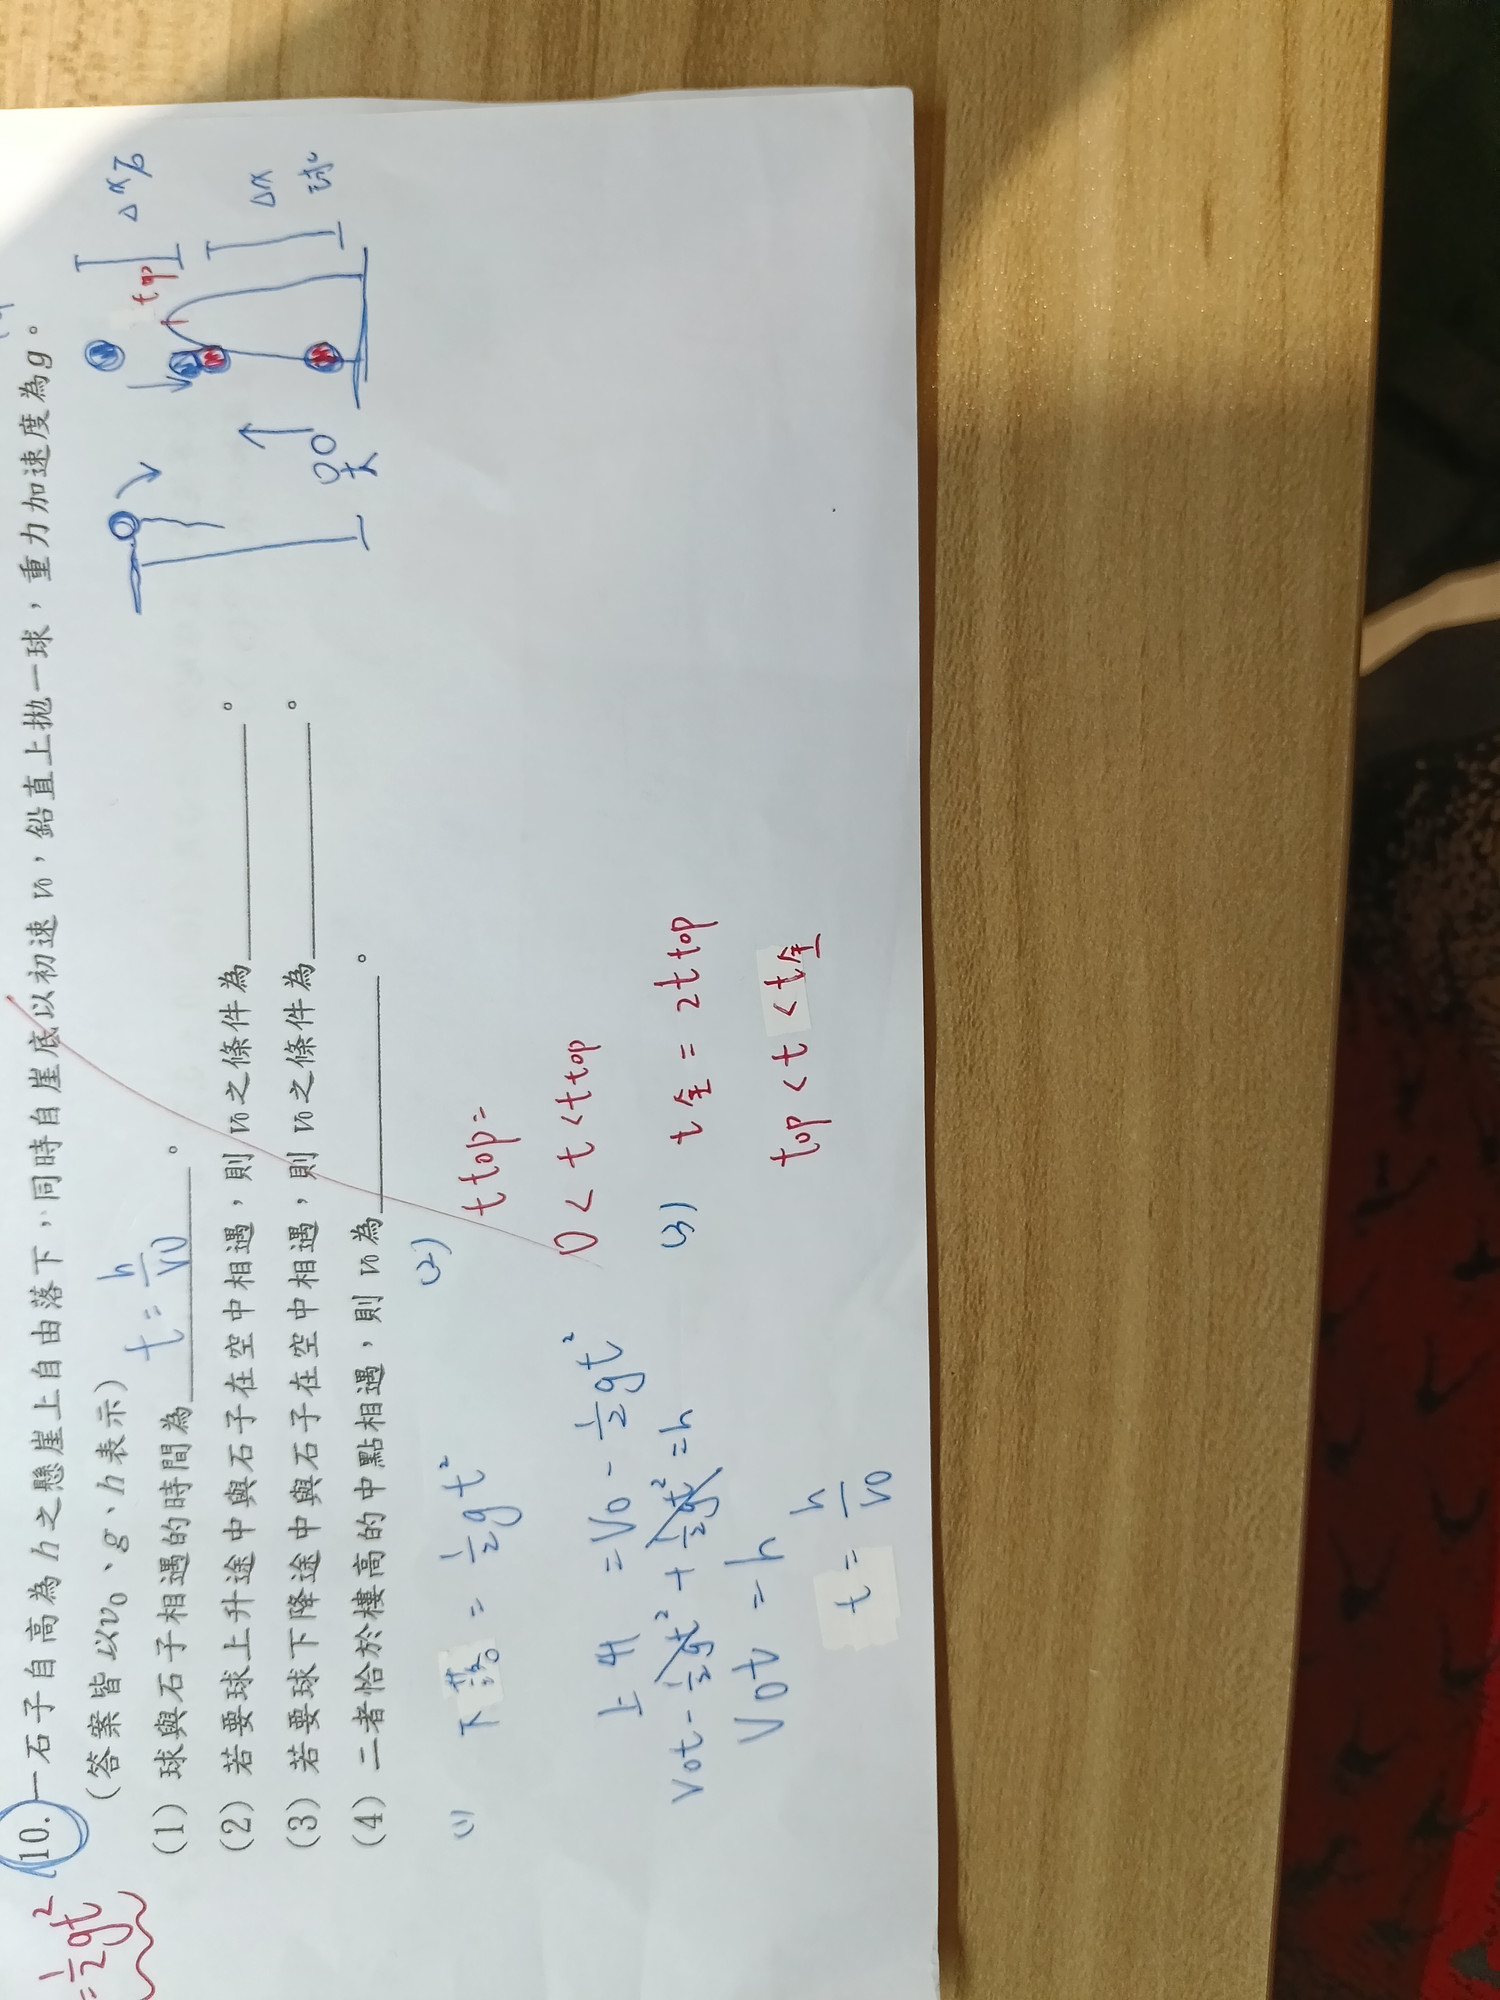 =½gt²
10. 一石子自高為 h 之懸崖上自由落下，同時自崖底以初速 v₀，鉛直上拋一球，重力加速度為g。
（答案皆以v₀、g、h表示）
（1）球與石子相遇的時間為 t = h/v0 。
（2）若要球上升途中與石子在空中相遇，則 v₀之條件為＿＿＿。
（3）若要球下降途中與石子在空中相遇，則 v₀之條件為＿＿＿。
（4）二者恰於樓高的中點相遇，則 v₀為＿＿＿。
top
Δx石
Δx
球
(1)
下落 = ½gt²
上升 = V0 - ½gt²
V0t - ½gt² + ½gt² = h
V0t = h
t = h/V0
(2)
t top =
0 < t < t top
(3)
t全 = 2t top
top < t < t全